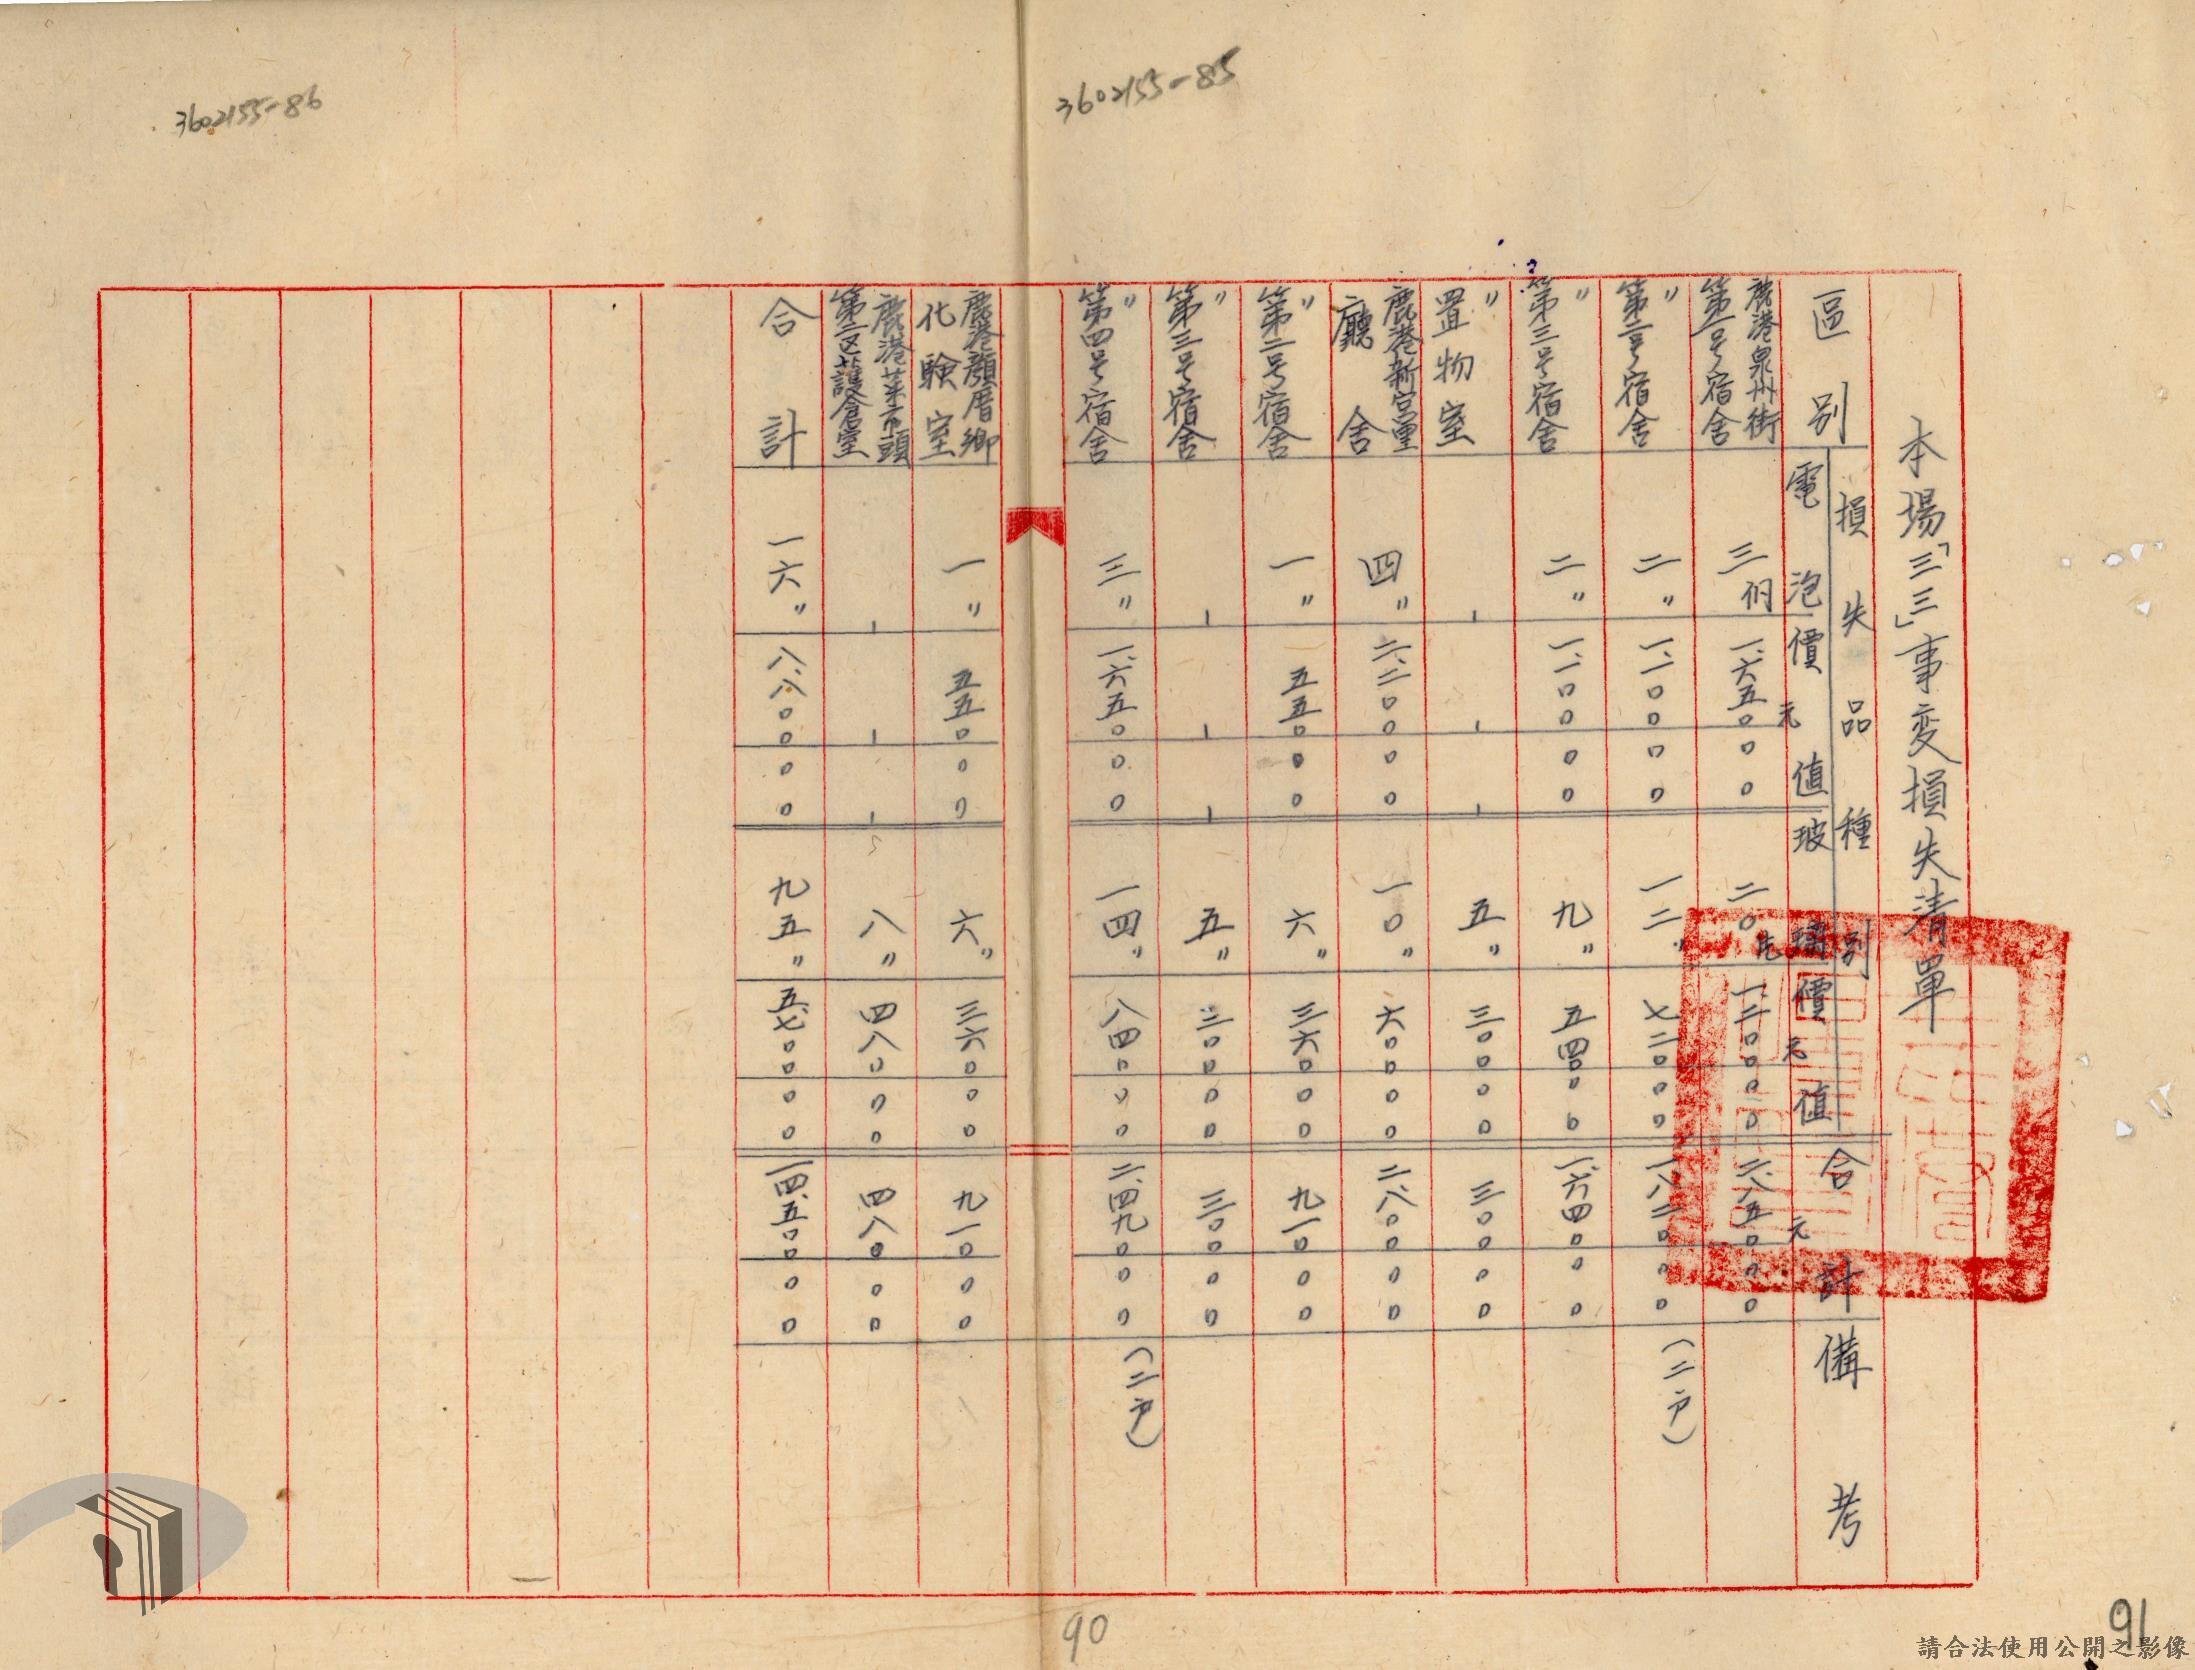 3602155-85
3602155-86
本場「三三」事変損失清單
區別
損失品種別
電泡價值
元
玻璃價值
元
合計
元
備考
鹿港泉州街
第一号宿舍
三個
一、六五〇
〇〇
二〇片
一、二〇〇
〇〇
二、八五〇
〇〇
〃
第二号宿舍
二〃
一、一〇〇
〇〇
一二〃
七二〇
〇〇
一、八二〇
〇〇
(二户)
〃
第三号宿舍
二〃
一、一〇〇
〇〇
九〃
五四〇
〇〇
一、六四〇
〇〇
〃
置物室
五〃
三〇〇
〇〇
三〇〇
〇〇
鹿港新宮里
廳舍
四〃
二、二〇〇
〇〇
一〇〃
六〇〇
〇〇
二、八〇〇
〇〇
〃
第二号宿舍
一〃
五五〇
〇〇
六〃
三六〇
〇〇
九一〇
〇〇
〃
第三号宿舍
五〃
三〇〇
〇〇
三〇〇
〇〇
〃
第四号宿舍
三〃
一、六五〇
〇〇
一四〃
八四〇
〇〇
二、四九〇
〇〇
(二户)
鹿港顏厝鄉
化験室
一〃
五五〇
〇〇
六〃
三六〇
〇〇
九一〇
〇〇
鹿港菜市頭
第二区
八〃
四八〇
〇〇
四八〇
〇〇
合計
一六〃
八、八〇〇
〇〇
九五〃
五、七〇〇
〇〇
一四、五〇〇
〇〇
90
91
請合法使用公開之影像